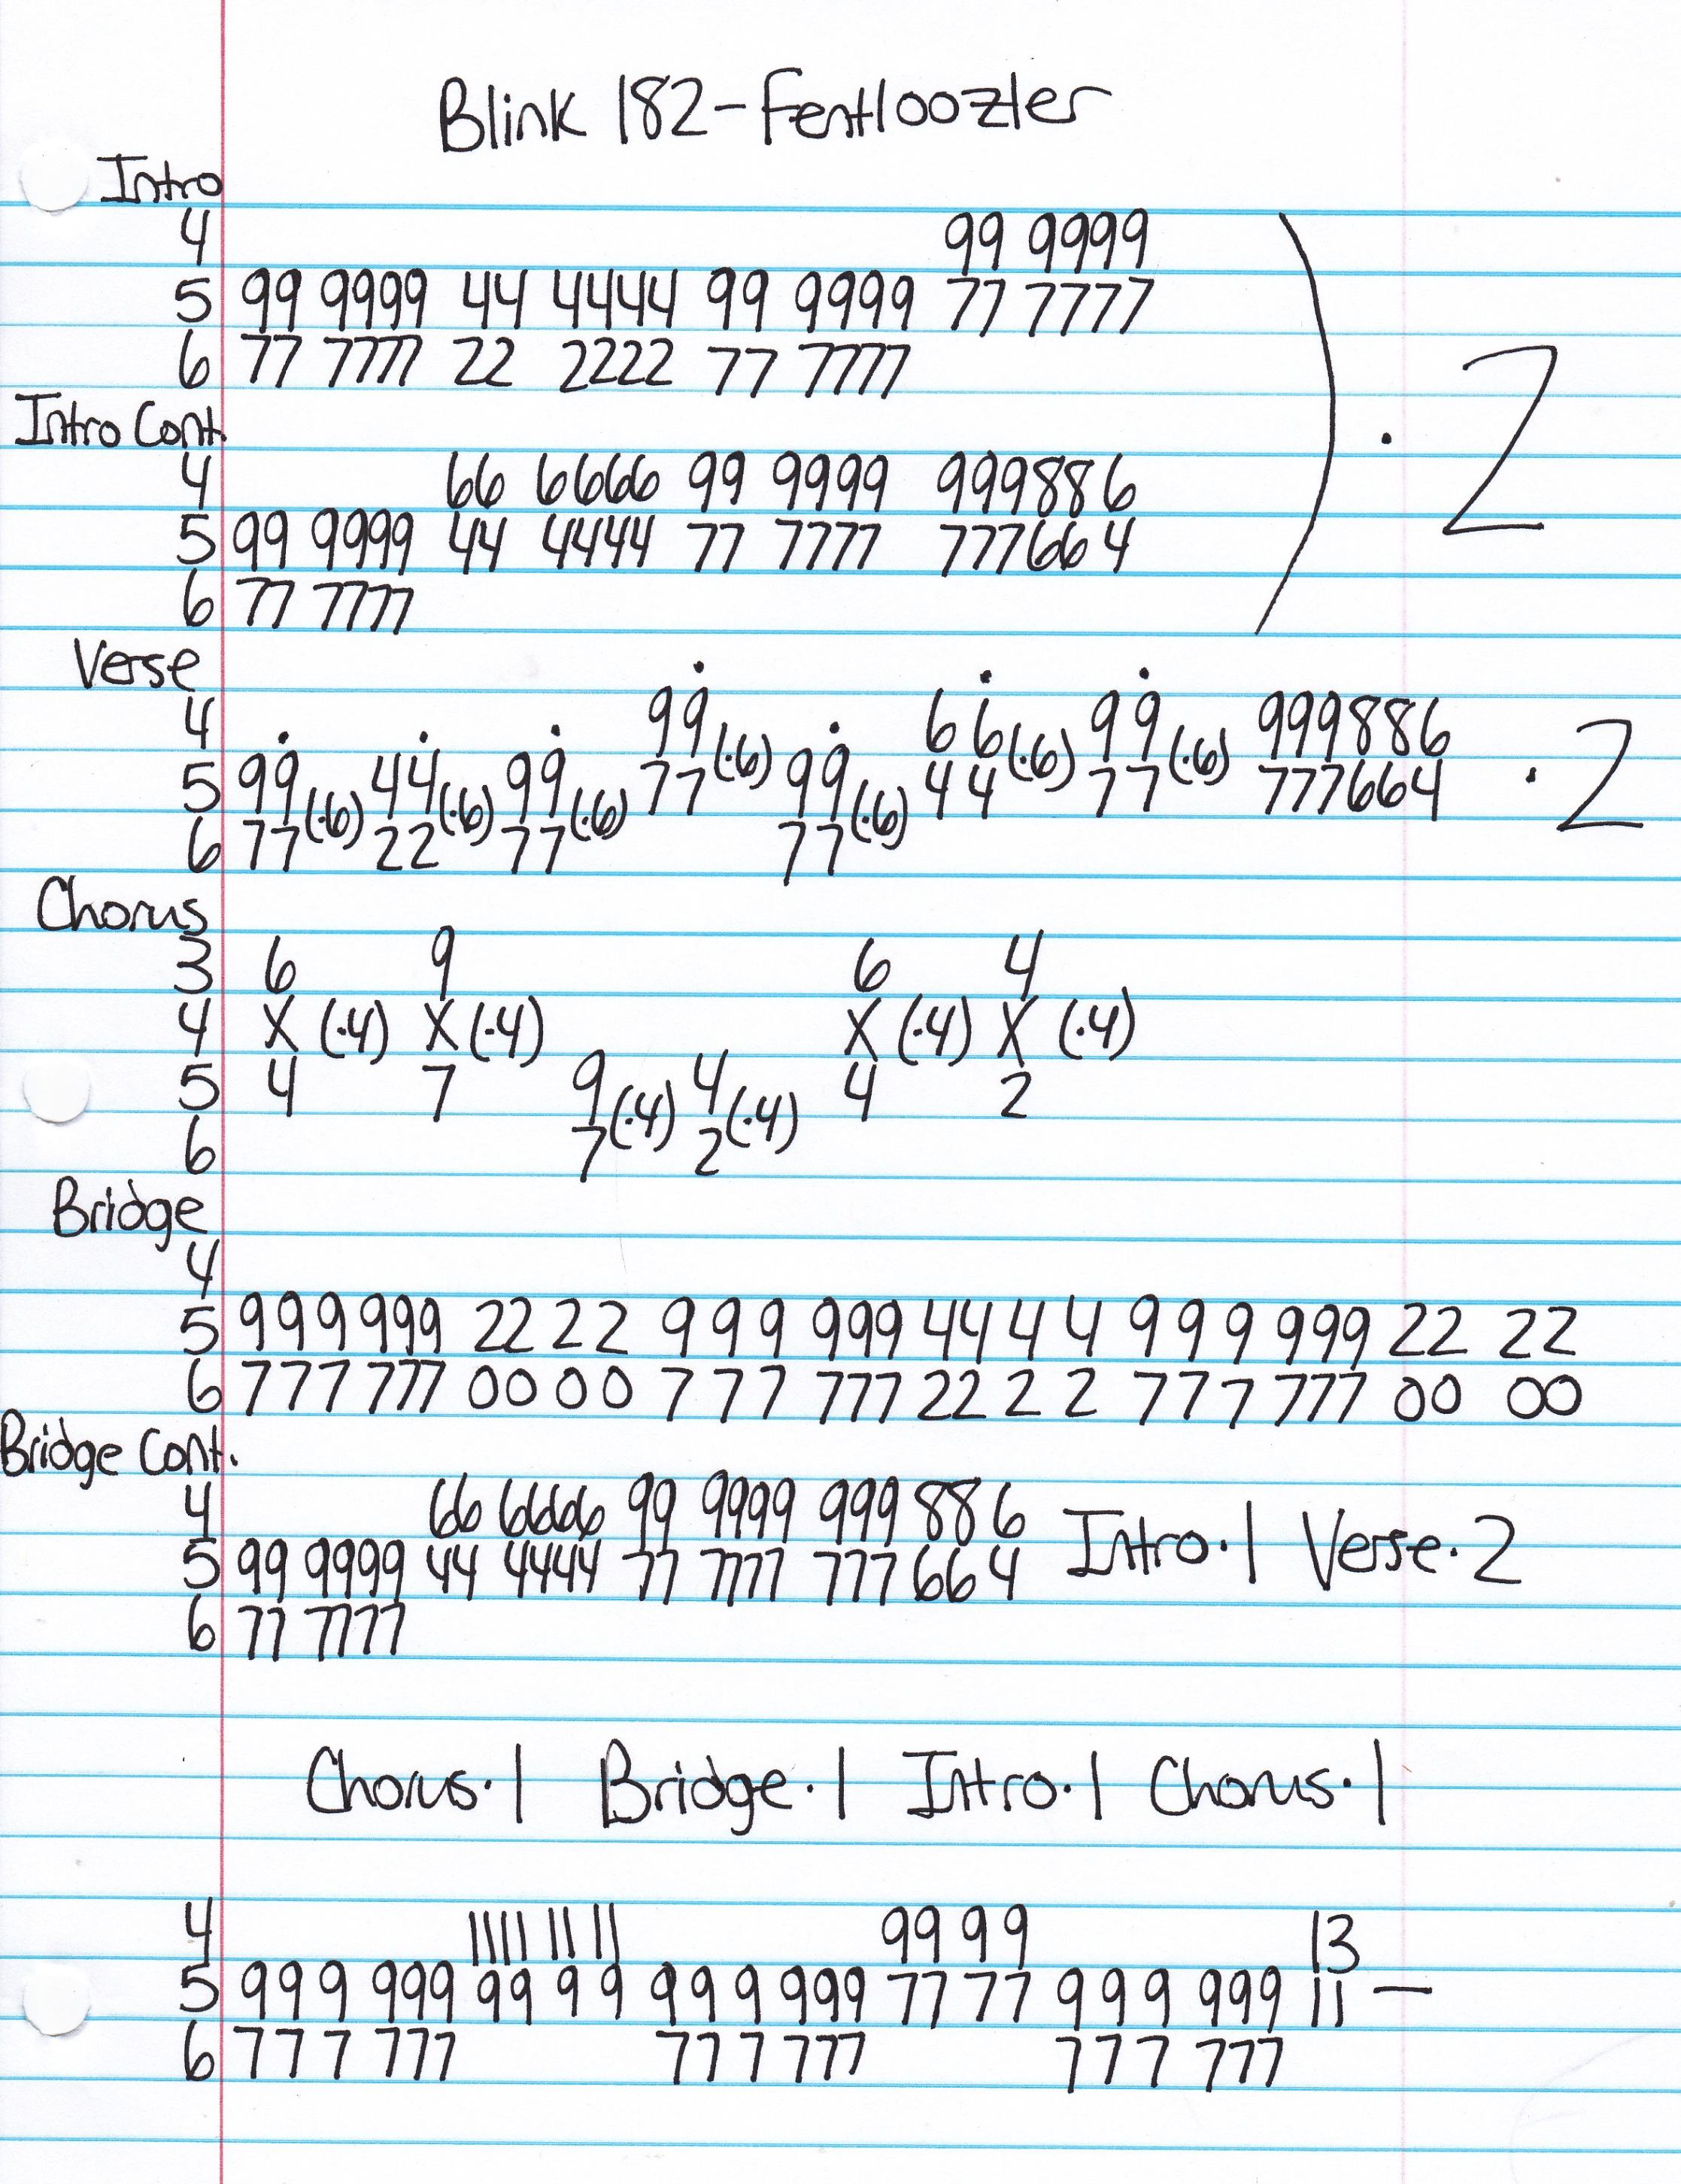 Blink 182-Fentloozler
Intro
4 99 9999
5 99 9999 44 4444 99 9999 77 7777
6 77 7777 22 2222 77 7777
) · 2
Intro Cont.
4 66 6666 99 9999 999886
5 99 9999 44 4444 77 7777 777664
6 77 7777
Verse
4 99(·6) 66(·6) 99(·6) 999886
5 99(·6) 44(·6) 99(·6) 77 99(·6) 44 77 777664 · 2
6 77 22 77 77
Chorus
3 6 9 6 4
4 X (·4) X (·4) X (·4) X (·4)
5 4 7 9(·4) 4(·4) 4 2
6 7 2
Bridge
4
5 999 999 22 2 2 9 9 9 999 44 4 4 9 9 9 999 22 22
6 777 777 00 0 0 7 7 7 777 22 2 2 7 7 7 777 00 00
Bridge Cont.
4 66 6666 99 9999 999 886
5 99 9999 44 4444 77 7777 777 664 Intro·1 Verse·2
6 77 7777
Chorus·1 Bridge·1 Intro·1 Chorus·1
4 1111 11 11 99 9 9 13
5 99 9 999 99 9 9 99 9 999 77 77 99 9 999 11 —
6 77 7 777 77 7 777 77 7 777